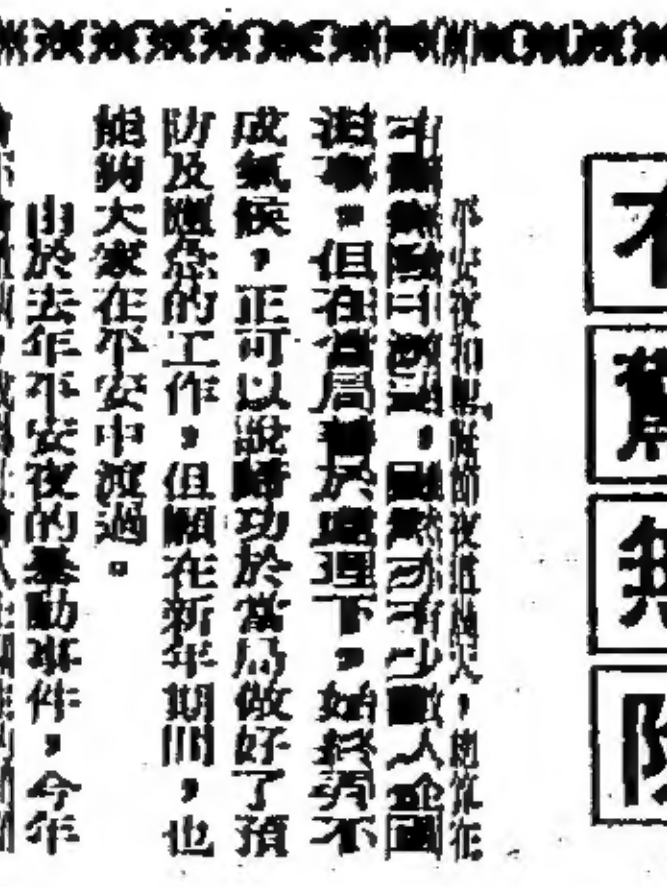 有驚無險
平安夜和聖誕節夜這兩天，總算在
有驚無險中渡過，雖然亦有少數人企圖
滋事，但在當局善於處理下，始終弄不
成氣候，正可以說歸功於當局做好了預
防及應急的工作，但願在新年期間，也
能夠大家在平安中渡過。
由於去年平安夜的暴動事件，今年